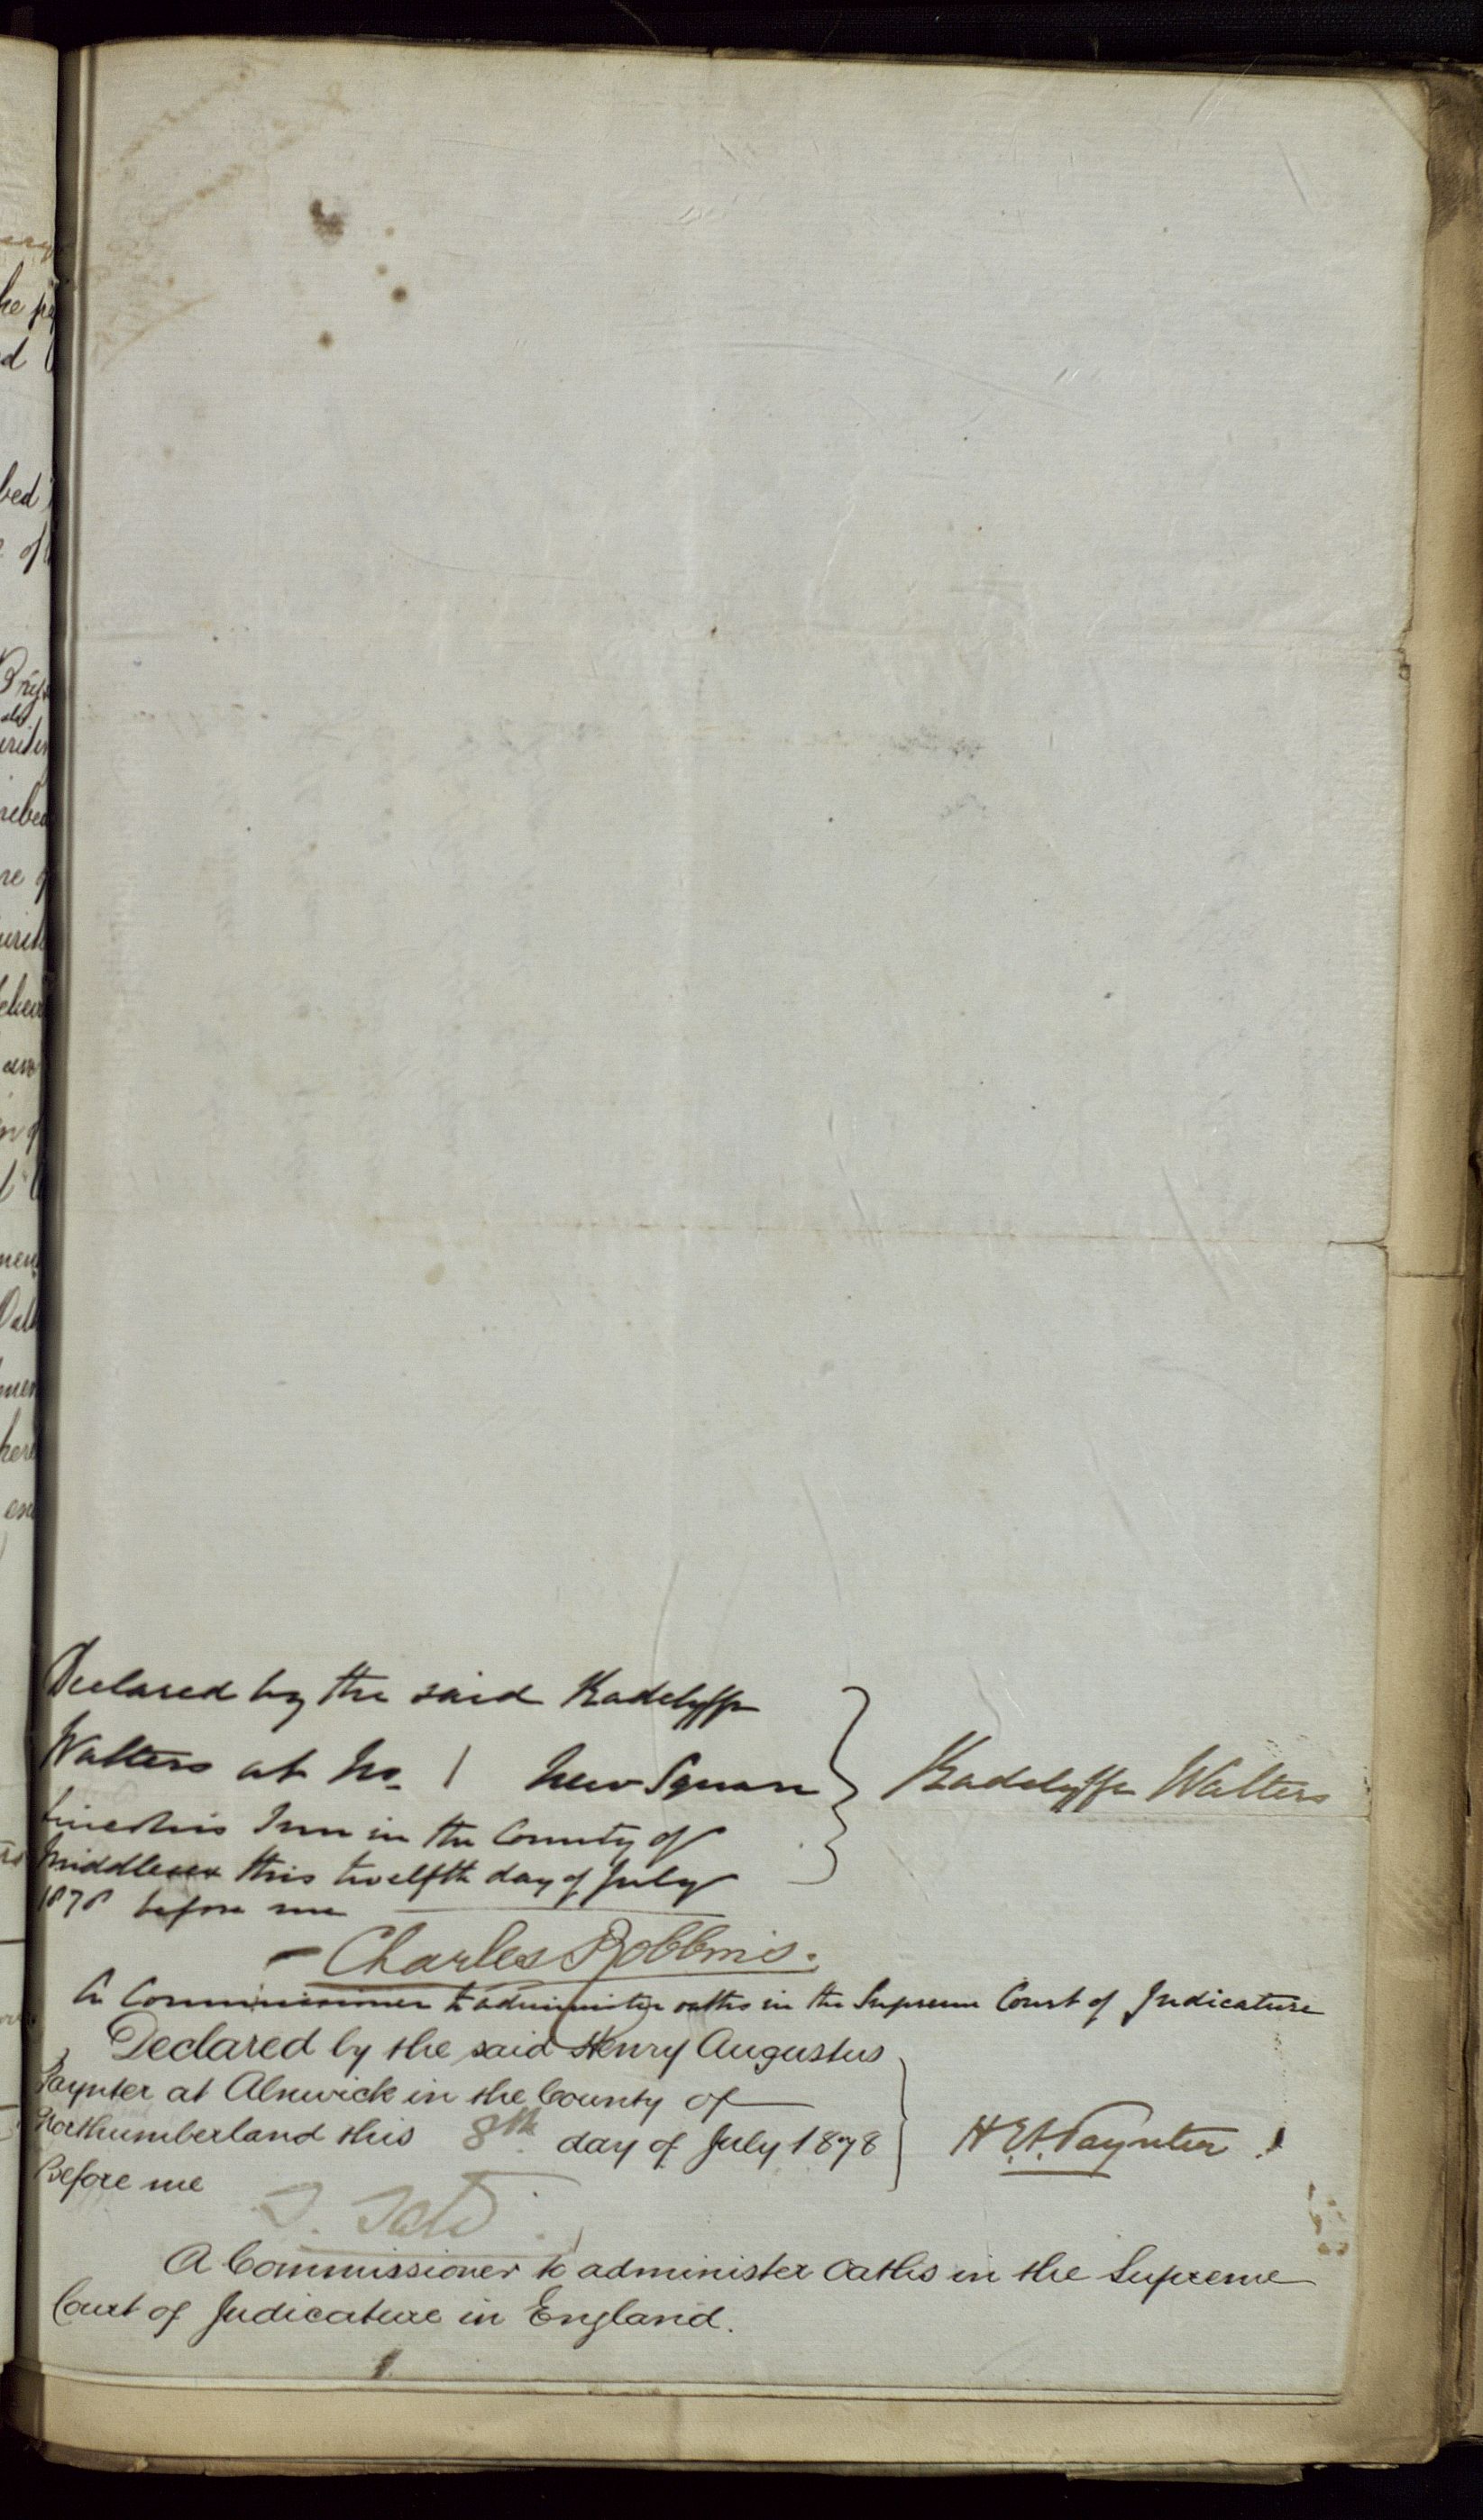 Declared by the said Radclyffe
Walters at No. 1 New Square
Lincoln's Inn in the County of
Middlesex this twelfth day of July
1878 before me
Radclyffe Walters
Charles Robbins.
A Commissioner to administer oaths in the Supreme Court of Judicature
Declared by the said Henry Augustus
Paynter at Alnwick in the County of
Northumberland this 8th day of July 1878
Before me
H. A. Paynter
A Commissioner to administer Oaths in the Supreme
Court of Judicature in England.